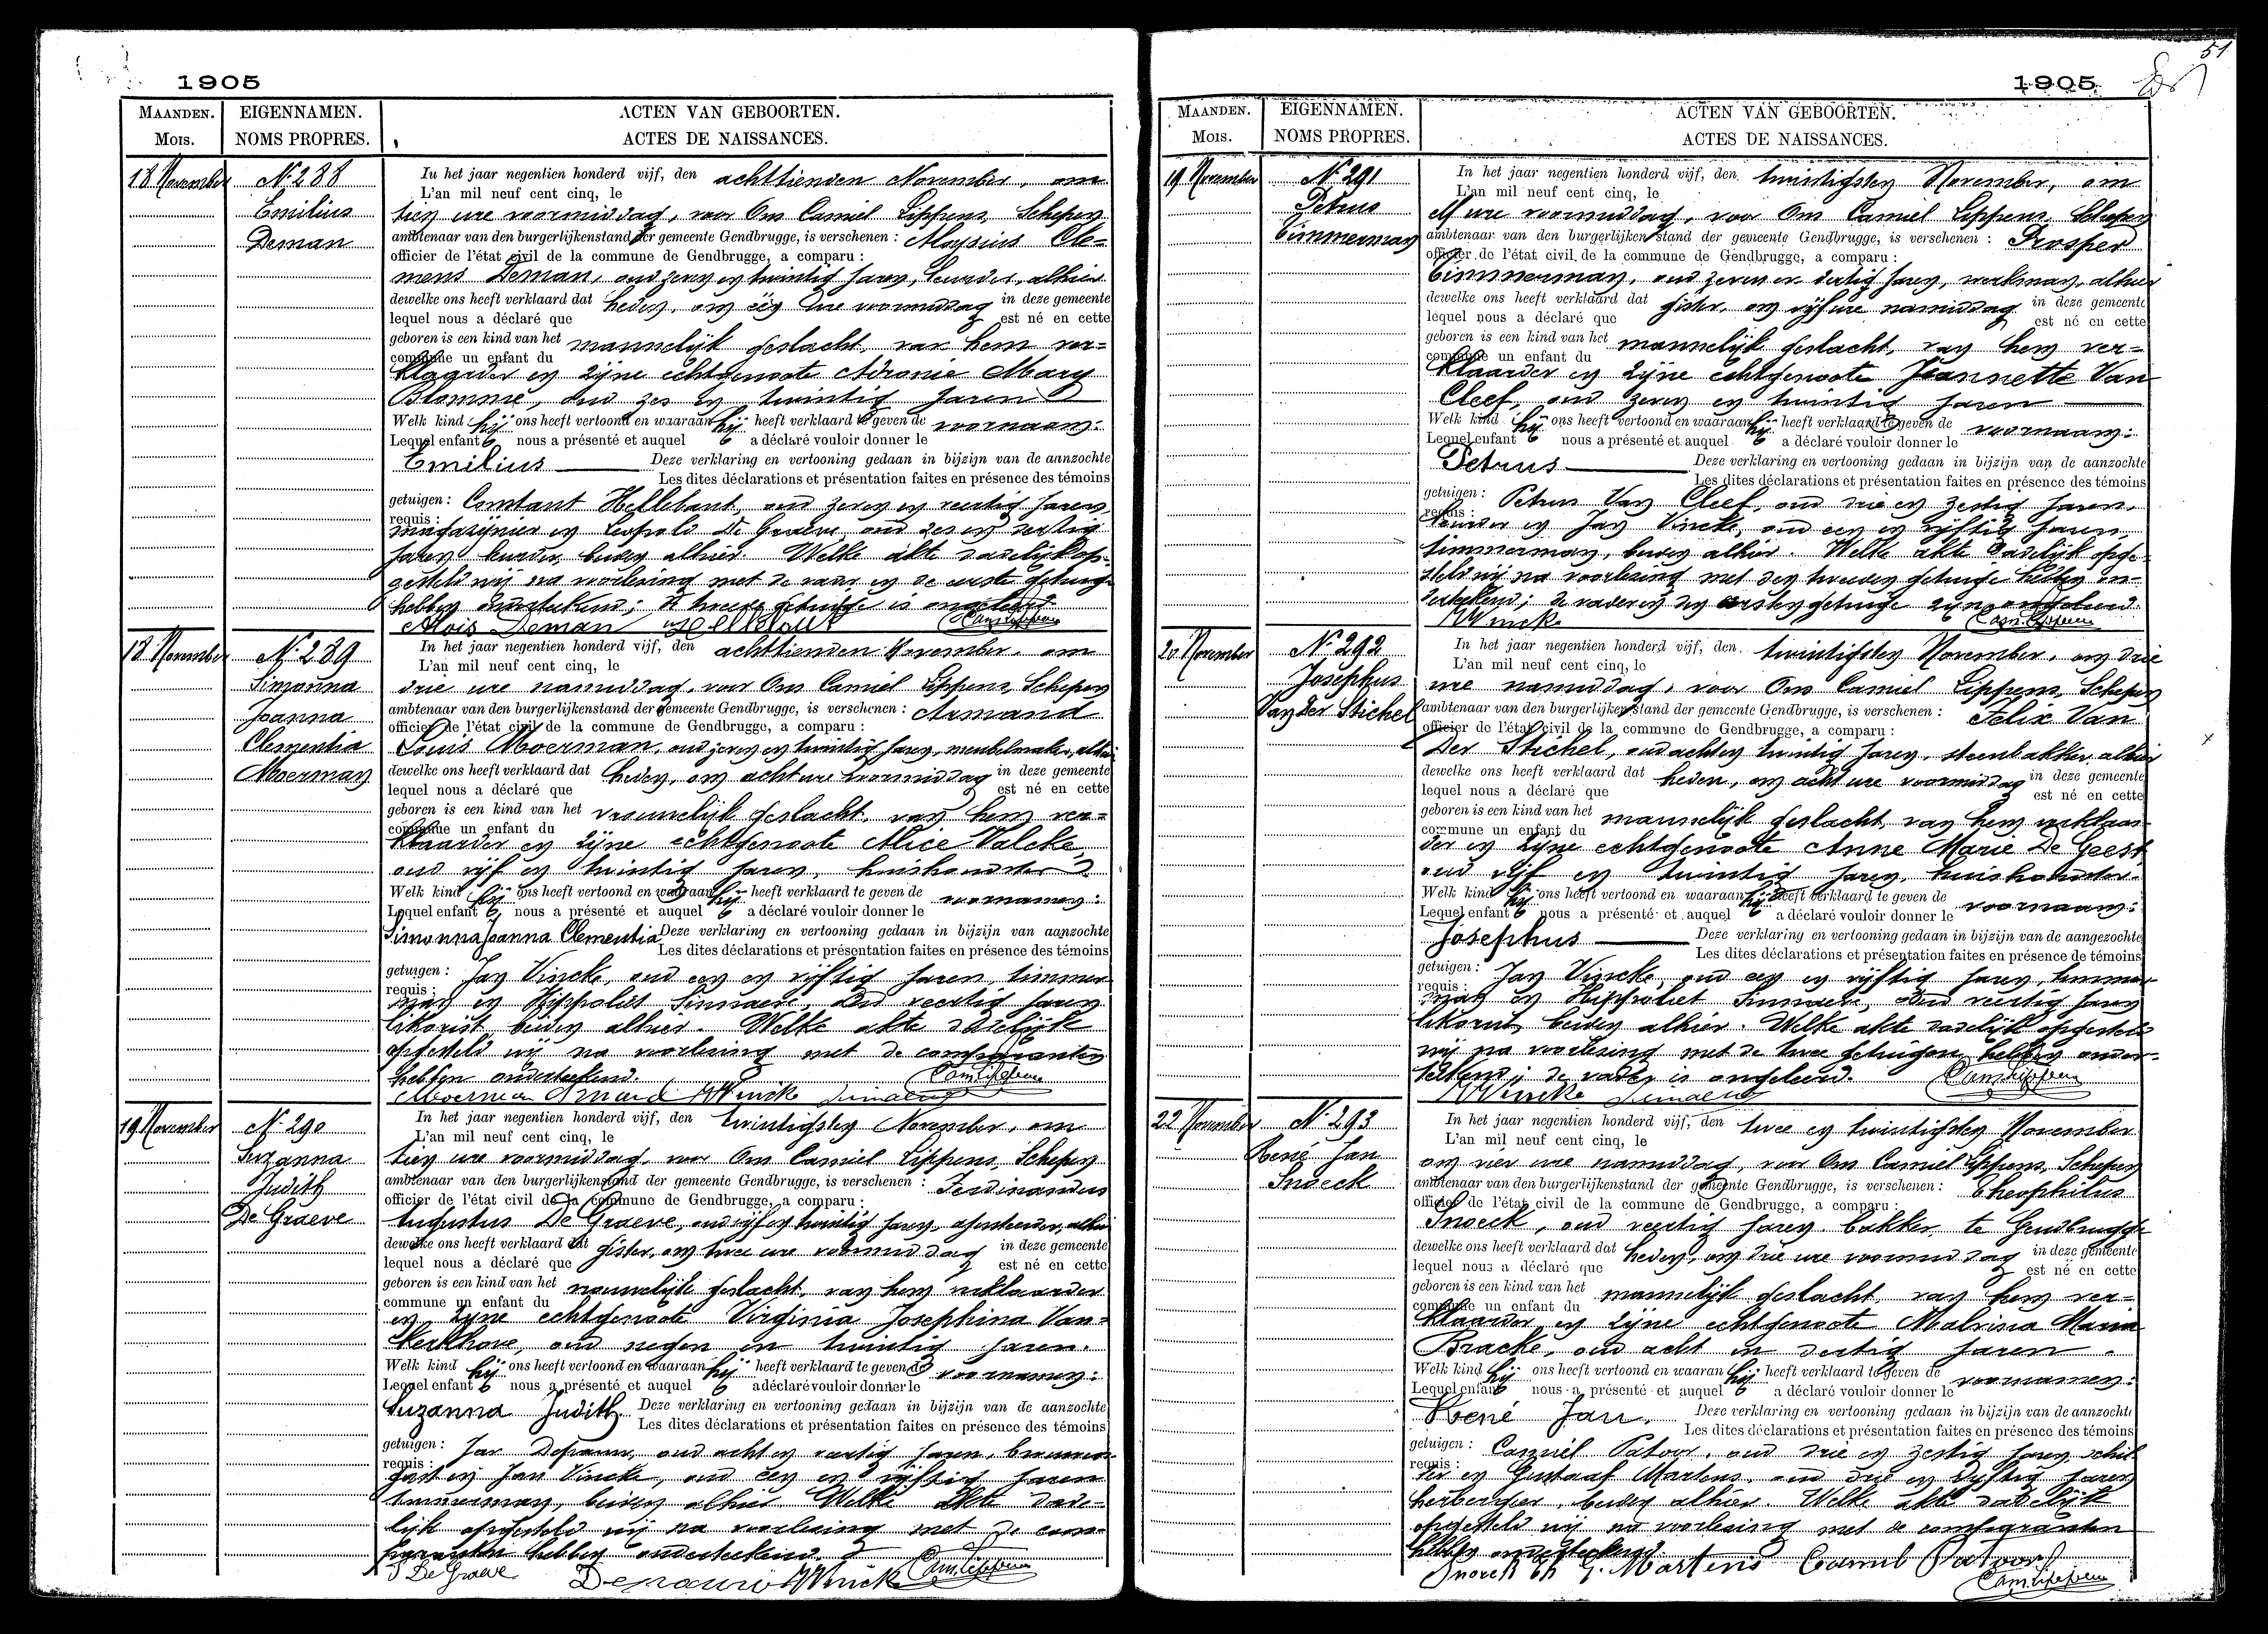 1905
MAANDEN. EIGENNAMEN. ACTEN VAN GEBOORTEN.
MOIS. NOMS PROPRES. ACTES DE NAISSANCES.
18 November
Nº 288
Emilius
Deman
In het jaar negentien honderd vijf, den achttienden November, om
L'an mil neuf cent cinq, le
tien ure voormiddag, voor Ons Camiel Lippens, Schepen
ambtenaar van den burgerlijkenstand der gemeente Gendbrugge, is verschenen : Aloysius Cle-
officier de l'état civil de la commune de Gendbrugge, a comparu :
mens Deman, oud zeven en twintig jaren, alhier
dewelke ons heeft verklaard dat heden, om één ure voormiddag in deze gemeente
lequel nous a déclaré que est né en cette
geboren is een kind van het mannelijk geslacht, van hem ver-
commune un enfant du
klaarder en zijne echtgenoote Adronie Mary
Blomme, oud zes en twintig jaren
Welk kind hij ons heeft vertoond en waaraan hij heeft verklaard te geven de voornaam:
Lequel enfant nous a présenté et auquel a déclaré vouloir donner le
Emilius Deze verklaring en vertooning gedaan in bijzijn van de aanzochte
Les dites déclarations et présentation faites en présence des témoins
getuigen : Constant Hellebaut, oud zeven en veertig jaren,
requis :
magazijnier en Leopold De Graeve, oud zes en dertig
jaren, beiden alhier. Welke akte dadelijk op-
gesteld wij na voorlezing met de vader en de eerste getuige
hebben onderteekend; de tweede getuige is ongeleerd.
Alois Deman Hellebaut Cam. Lippens
18 November
Nº 289
Simonna
Joanna
Clementia
Moerman
In het jaar negentien honderd vijf, den achttienden November, om
L'an mil neuf cent cinq, le
drie ure namiddag, voor Ons Camiel Lippens, Schepen
ambtenaar van den burgerlijkenstand der gemeente Gendbrugge, is verschenen : Armand
officier de l'état civil de la commune de Gendbrugge, a comparu :
Louis Moerman, oud zeven en twintig jaren, meubelmaker, alhier
dewelke ons heeft verklaard dat heden, om acht ure voormiddag in deze gemeente
lequel nous a déclaré que est né en cette
geboren is een kind van het vrouwelijk geslacht, van hem ver-
commune un enfant du
klaarder en zijne echtgenoote Alice Valcke,
oud vijf en twintig jaren, huishoudster
Welk kind hij ons heeft vertoond en waaraan hij heeft verklaard te geven de voornamen:
Lequel enfant nous a présenté et auquel a déclaré vouloir donner le
Simonna Joanna Clementia Deze verklaring en vertooning gedaan in bijzijn van aanzochte
Les dites déclarations et présentation faites en présence des témoins
getuigen : Jan Vincke, oud een en vijftig jaren, timmer
requis :
man en Hippoliet Sinnaeve, oud veertig jaren
likorist, beiden alhier. Welke akte dadelijk
opgesteld wij na voorlezing met de comparanten
hebben onderteekend.
Moerman Armand J Vincke Sinnaeve Cam. Lippens
19 November
Nº 290
Suzanna
Judith
De Graeve
In het jaar negentien honderd vijf, den twintigsten November, om
L'an mil neuf cent cinq, le
tien ure voormiddag, voor Ons Camiel Lippens, Schepen
ambtenaar van den burgerlijkenstand der gemeente Gendbrugge, is verschenen : Ferdinandus
officier de l'état civil de la commune de Gendbrugge, a comparu :
Augustus De Graeve, oud vijf en twintig jaren, alhier
dewelke ons heeft verklaard dat gister, om twee ure voormiddag in deze gemeente
lequel nous a déclaré que est né en cette
geboren is een kind van het vrouwelijk geslacht, van hem verklaarder
commune un enfant du
en zijne echtgenoote Virginia Josephina Van-
kerkhove, oud negen en twintig jaren.
Welk kind hij ons heeft vertoond en waaraan hij heeft verklaard te geven de voornamen:
Lequel enfant nous a présenté et auquel a déclaré vouloir donner le
Suzanna Judith Deze verklaring en vertooning gedaan in bijzijn van de aanzochte
Les dites déclarations et présentation faites en présence des témoins
getuigen : Jan oud acht en veertig jaren,
requis :
gast en Jan Vincke, oud een en vijftig jaren
timmerman, beiden alhier. Welke akte dade-
lijk opgesteld wij na voorlezing met de com-
paranten hebben onderteekend.
De Graeve J Vincke Cam. Lippens
51
1905
MAANDEN. EIGENNAMEN. ACTEN VAN GEBOORTEN.
MOIS. NOMS PROPRES. ACTES DE NAISSANCES.
19 November
Nº 291
Petrus
Timmerman
In het jaar negentien honderd vijf, den twintigsten November, om
L'an mil neuf cent cinq, le
elf ure voormiddag, voor Ons Camiel Lippens, Schepen
ambtenaar van den burgerlijken stand der gemeente Gendbrugge, is verschenen : Prosper
officier de l'état civil de la commune de Gendbrugge, a comparu :
Timmerman, oud zeven en dertig jaren, werkman, alhier
dewelke ons heeft verklaard dat gister, om vijf ure namiddag in deze gemeente
lequel nous a déclaré que est né en cette
geboren is een kind van het mannelijk geslacht, van hem ver-
commune un enfant du
klaarder en zijne echtgenoote Jeannette Van
Cleef, oud zeven en twintig jaren
Welk kind hij ons heeft vertoond en waaraan hij heeft verklaard te geven de voornaam:
Lequel enfant nous a présenté et auquel a déclaré vouloir donner le
Petrus Deze verklaring en vertooning gedaan in bijzijn van de aanzochte
Les dites déclarations et présentation faites en présence des témoins
getuigen : Petrus Van Cleef, oud drie en zestig jaren,
requis :
en Jan Vincke, oud een en vijftig jaren,
timmerman, beiden alhier. Welke akte dadelijk opge-
steld wij na voorlezing met den tweeden getuige hebben on-
derteekend; de vader en den eersten getuige zijn ongeleerd.
J Vincke Cam. Lippens
20 November
Nº 292
Josephus
Van Der Stichel
In het jaar negentien honderd vijf, den twintigsten November, om drie
L'an mil neuf cent cinq, le
ure namiddag, voor Ons Camiel Lippens, Schepen
ambtenaar van den burgerlijkenstand der gemeente Gendbrugge, is verschenen : Felix Van
officier de l'état civil de la commune de Gendbrugge, a comparu :
Der Stichel, oud acht en twintig jaren, steenbakker, alhier
dewelke ons heeft verklaard dat heden, om acht ure voormiddag in deze gemeente
lequel nous a déclaré que est né en cette
geboren is een kind van het mannelijk geslacht, van hem verklaar-
commune un enfant du
der en zijne echtgenoote Anne Marie De Geest
oud vijf en twintig jaren, huishoudster.
Welk kind hij ons heeft vertoond en waaraan hij heeft verklaard te geven de voornaam:
Lequel enfant nous a présenté et auquel a déclaré vouloir donner le
Josephus Deze verklaring en vertooning gedaan in bijzijn van de aangezochte
Les dites déclarations et présentation faites en présence de témoins
getuigen : Jan Vincke, oud een en vijftig jaren, timmer
requis :
man en Hippoliet Sinnaeve, oud veertig jaren
likorist, beiden alhier. Welke akte dadelijk opgesteld
wij na voorlezing met de twee getuigen hebben onder-
teekend; de vader is ongeleerd.
J Vincke Sinnaeve Cam. Lippens
22 November
Nº 293
René Jan
Snoeck
In het jaar negentien honderd vijf, den twee en twintigsten November
L'an mil neuf cent cinq, le
om vier ure namiddag, voor Ons Camiel Lippens, Schepen
ambtenaar van den burgerlijkenstand der gemeente Gendbrugge, is verschenen : Theophilus
officier de l'état civil de la commune de Gendbrugge, a comparu :
Snoeck, oud veertig jaren, bakker, te Gendbrugge
dewelke ons heeft verklaard dat heden, om drie ure voormiddag in deze gemeente
lequel nous a déclaré que est né en cette
geboren is een kind van het mannelijk geslacht, van hem ver-
commune un enfant du
klaarder en zijne echtgenoote Malvina Maria
Bracke, oud acht en dertig jaren.
Welk kind hij ons heeft vertoond en waaran hij heeft verklaard te geven de voornamen:
Lequel enfant nous a présenté et auquel a déclaré vouloir donner le
René Jan. Deze verklaring en vertooning gedaan in bijzijn van de aanzochte
Les dites déclarations et présentation faites en présence des témoins
getuigen : Camiel Patoor, oud drie en zestig jaren, schil-
requis :
der en Gustaaf Martens, oud drie en vijftig jaren
herbergier, beiden alhier. Welke akte dadelijk
opgesteld wij na voorlezing met de comparanten
hebben onderteekend.
Snoeck Th G. Martens Camiel Patoor
Cam. Lippens